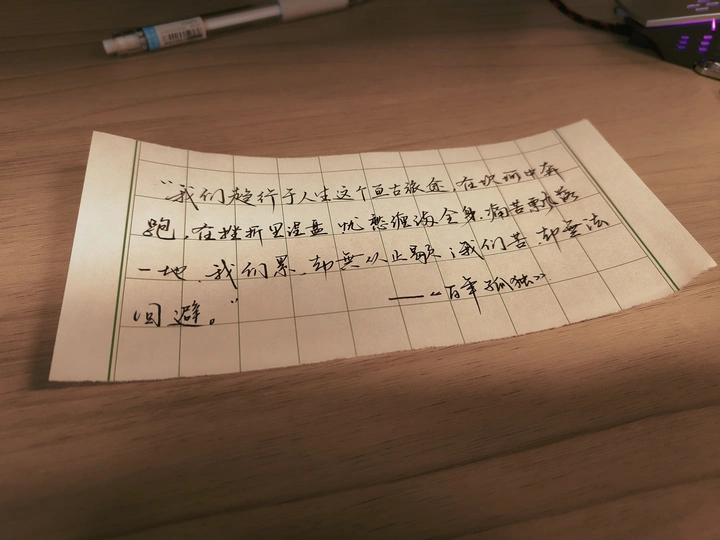 “我们趋行于人生这个亘古旅途,在坎坷中奔
跑,在挫折里涅盘,忧愁缠满全身,痛苦飘落
一地。我们累,却無从止歇;我们苦,却無法
回避。”
——《百年孤独》